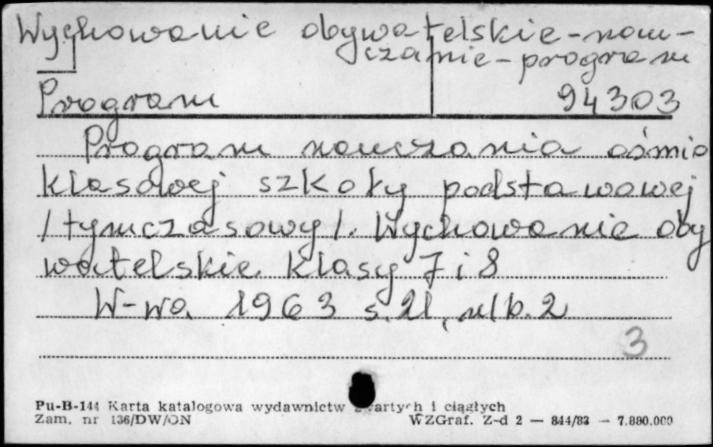 Wychowanie obywatelskie-nau-
czanie-program
Program 94303
Program nauczania ośmio
klasowej szkoły podstawowej
/tymczasowy/. Wychowanie oby
watelskie. Klasy 7 i 8
W-wa 1963 s. 21, nlb. 2
3
Pu-B-144 Karta katalogowa wydawnictw zwartych i ciągłych
Zam. nr 136/DW/ON WZGraf. Z-d 2 — 844/83 — 7.880.000